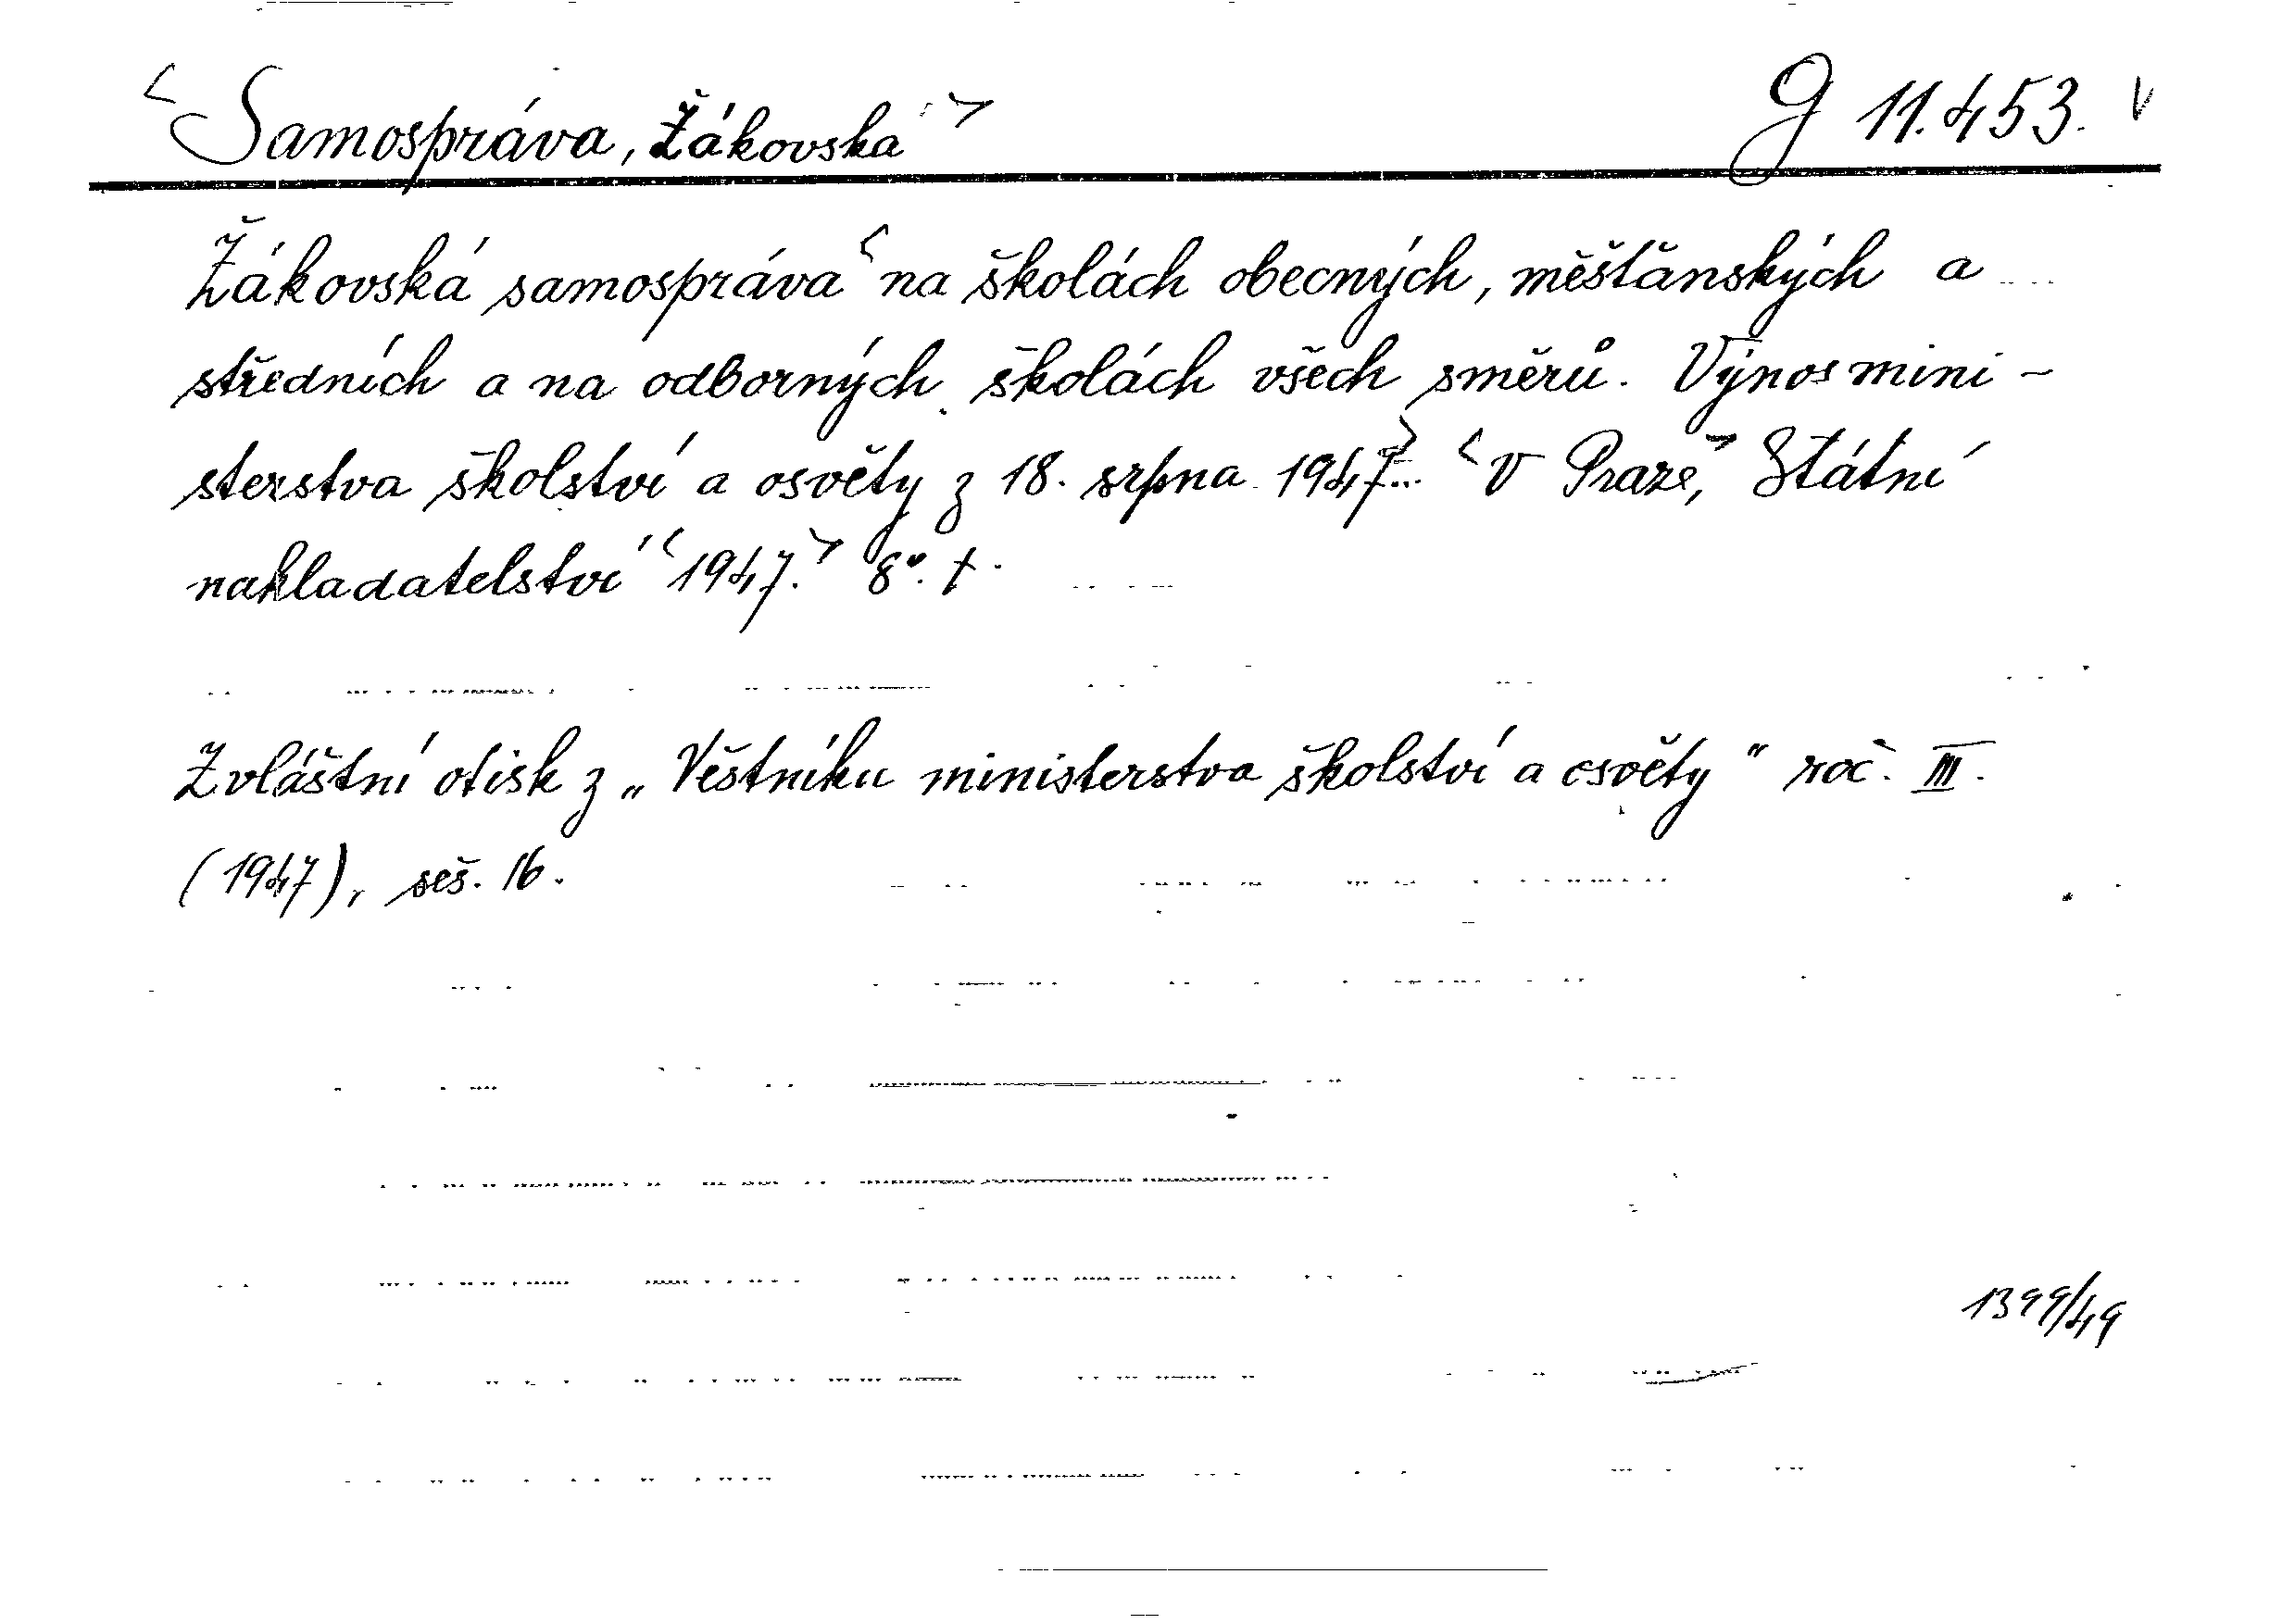 <Samospráva, Žákovská> G 11.453. V
Žákovská samospráva <na školách obecných, měšťanských a
středních a na odborných školách všech směrů. Výnos mini-
sterstva školství a osvěty z 18. srpna 1947>... <V Praze,> Státní
nakladatelství <1947.> 8°. †.
Zvláštní otisk z „Věstníku ministerstva školství a osvěty" roč. III.
(1947), seš. 16.
1399/49